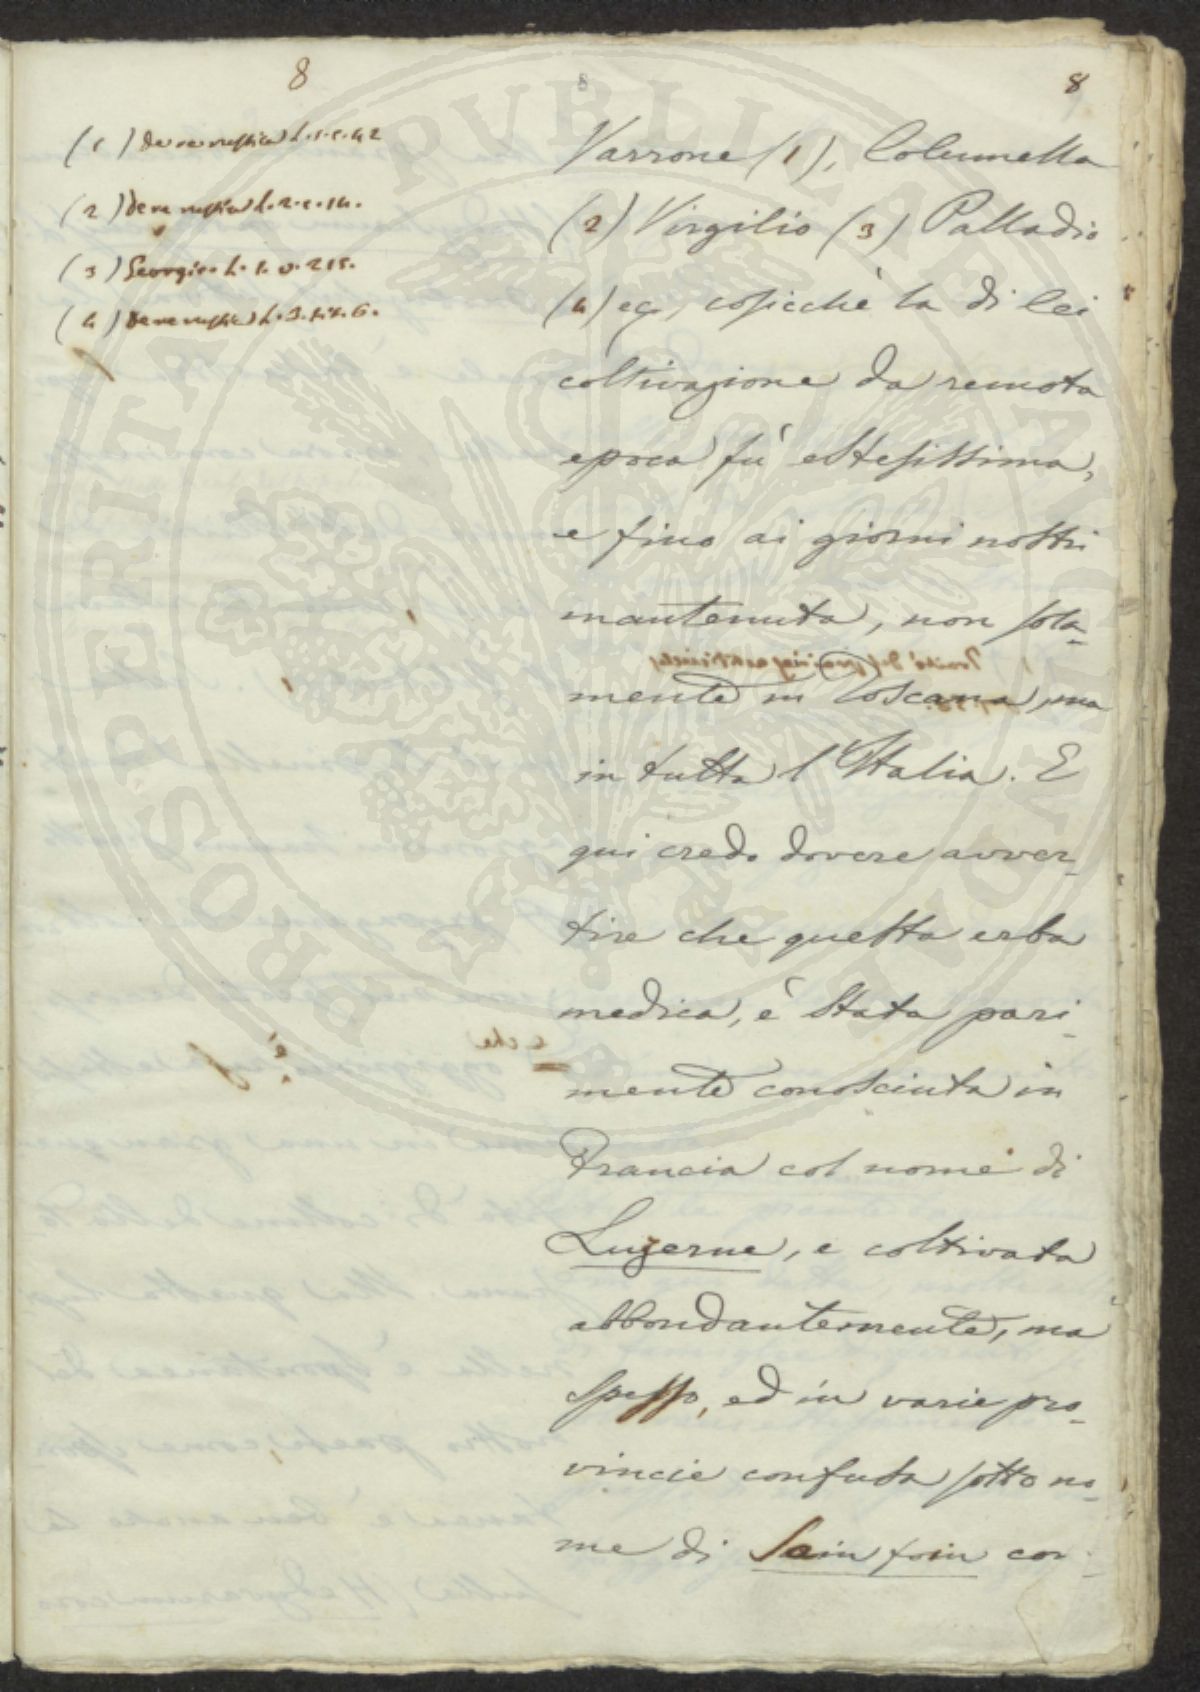 8
8
8
(1) de re rustica L. 1. c. 42
(2) de re rustica L. 2. c. 14.
(3) Georgic. L. 1. v. 215.
(4) de re rustica L. 3. t. 6.
Varrone (1), Columella
(2) Virgilio (3) Palladio
(4) ec, cosicchè la di lei
coltivazione da remota
epoca fù estesissima,
e fino ai giorni nostri
mantenuta, non sola-
mente in Toscana, ma
in tutta l'Italia. E
qui credo dovere avver-
tire che questa erba
medica, è stata pari-
mente conosciuta in
Francia col nome di
Luzerne, e coltivata
abbondantemente, ma
spesso, ed in varie pro-
vincie confusa sotto no-
me di Sain foin con
PROSPERITATI PUBLICAE AUGENDAE